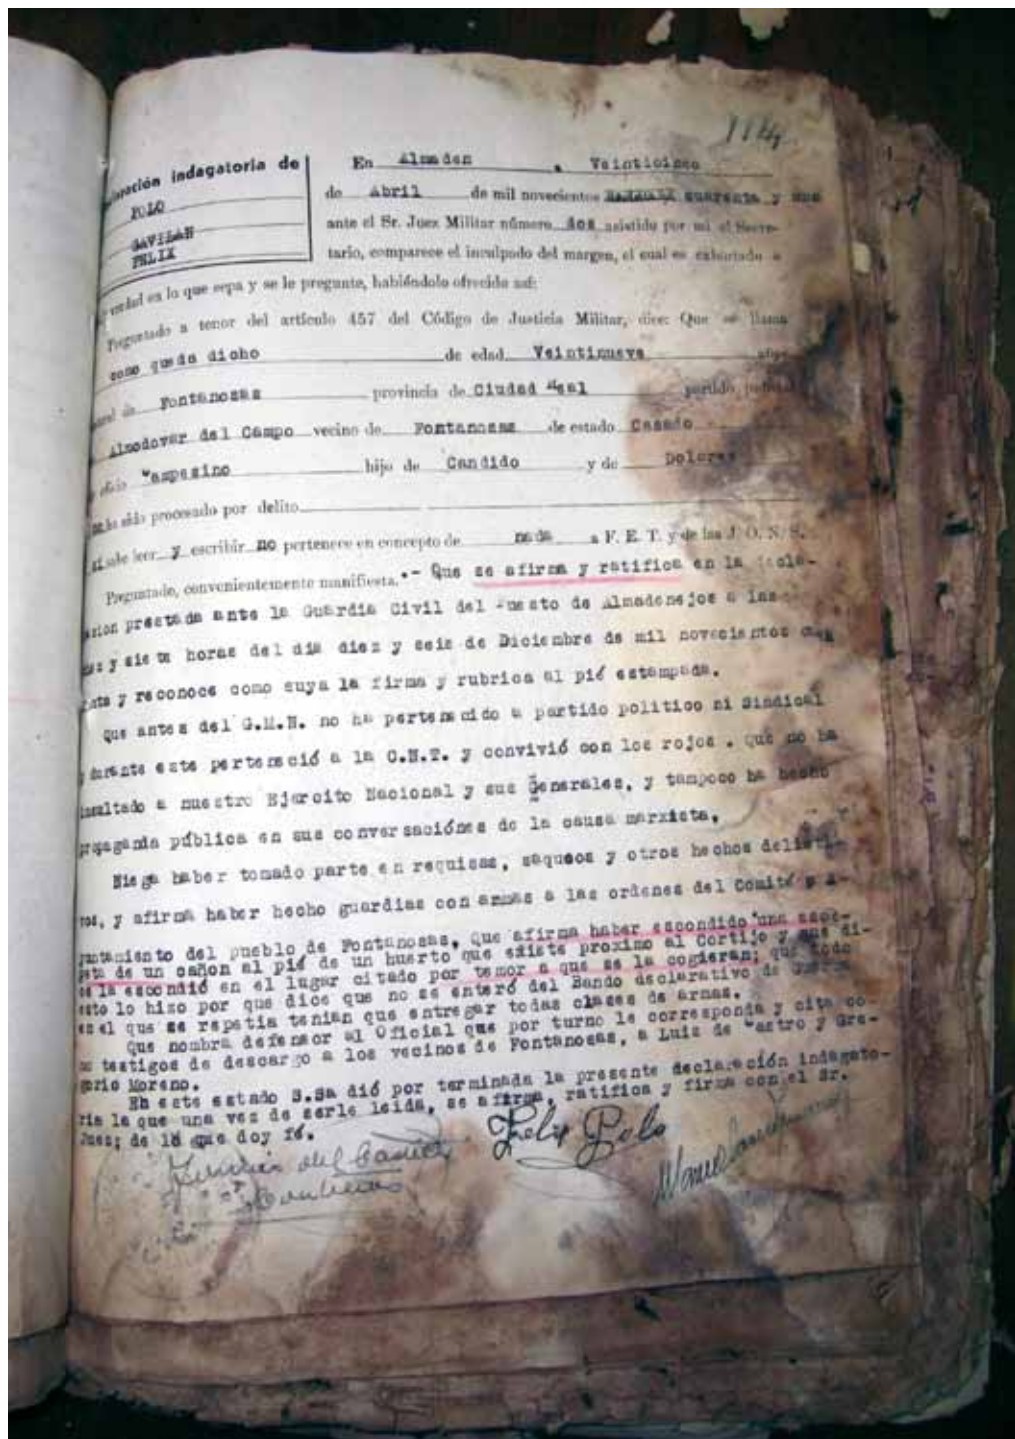 114
Declaración indagatoria de
POLO
GAVILAN
FELIX
En Almaden a Veinticinco
de Abril de mil novecientos cuarenta y uno
ante el Sr. Juez Militar número dos asistido por mi el Secre-
tario, comparece el inculpado del margen, el cual es exhortado a
verdad en lo que sepa y se le pregunte, habiéndolo ofrecido así:
Preguntado a tenor del artículo 457 del Código de Justicia Militar, dice: Que se llama
como queda dicho de edad Veintinueve años
natural de Fontanosas provincia de Ciudad Real partido judicial
Almodovar del Campo vecino de Fontanosas de estado Casado
oficio Campesino hijo de Candido y de Dolores
no ha sido procesado por delito
si sabe leer y escribir no pertenece en concepto de nada a F. E. T. y de las J. O. N. S.
Preguntado, convenientemente manifiesta.- Que se afirma y ratifica en la decla-
ración prestada ante la Guardia Civil del Puesto de Almadenejos a las
diez y siete horas del dia diez y seis de Diciembre de mil novecientos cua
renta y reconoce como suya la firma y rubrica al pié estampada.
Que antes del G.M.N. no ha pertenecido a partido politico ni Sindical
y durante este perteneció a la C.N.T. y convivió con los rojos . Que no ha
insultado a nuestro Ejercito Nacional y sus Generales, y tampoco ha hecho
propaganda pública en sus conversaciónes de la causa marxista.
Niega haber tomado parte en requisas, saqueos y otros hechos delicti-
vos, y afirma haber hecho guardias con armas a las ordenes del Comité y A-
yuntamiento del pueblo de Fontanosas, Que afirma haber escondido una esco-
peta de un cañon al pié de un huerto que existe proximo al Cortijo y que di-
se la escondió en el lugar citado por temor a que se la cogieran; que todo
esto lo hizo por que dice que no se enteró del Bando declarativo de Guerra
en el que se repetia tenian que entregar todas clases de armas.
Que nombra defensor al Oficial que por turno le corresponda y cita co-
mo testigos de descargo a los vecinos de Fontanosas, a Luis de Castro y Gre-
gorio Moreno.
En este estado S.Sa dió por terminada la presente declaración indagato-
ria la que una vez de serle leida, se afirma, ratifica y firma con el Sr.
Juez; de lo que doy fé.
Felix Polo